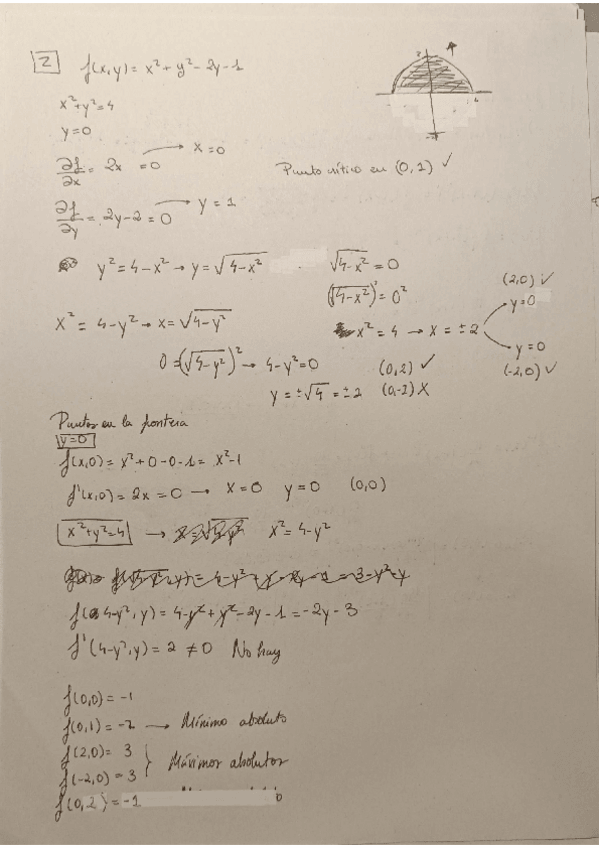 2 f(x,y) = x² + y² - 2y - 1
x² + y² = 4
y = 0
∂f/∂x = 2x = 0 → x = 0
Punto crítico en (0,1) ✓
∂f/∂y = 2y - 2 = 0 → y = 1
y² = 4 - x² → y = √(4-x²)
√(4-x²) = 0
(√(4-x²))² = 0²
x² = 4 → x = ±2
(2,0) ✓
y = 0
y = 0
(-2,0) ✓
x² = 4 - y² → x = √(4-y²)
0 = (√(4-y²))² → 4 - y² = 0 (0,2) ✓
y = ±√4 = ±2 (0,-2) X
Puntos en la frontera
y=0
f(x,0) = x² + 0 - 0 - 1 = x² - 1
f'(x,0) = 2x = 0 → x = 0 y = 0 (0,0)
x² + y² = 4 → x² = 4 - y²
f(4-y², y) = 4 - y² + y² - 2y - 1 = -2y - 3
f'(4-y², y) = 2 ≠ 0 No hay
f(0,0) = -1
f(0,1) = -2 → Mínimo absoluto
f(2,0) = 3
f(-2,0) = 3 } Máximos absolutos
f(0,2) = -1